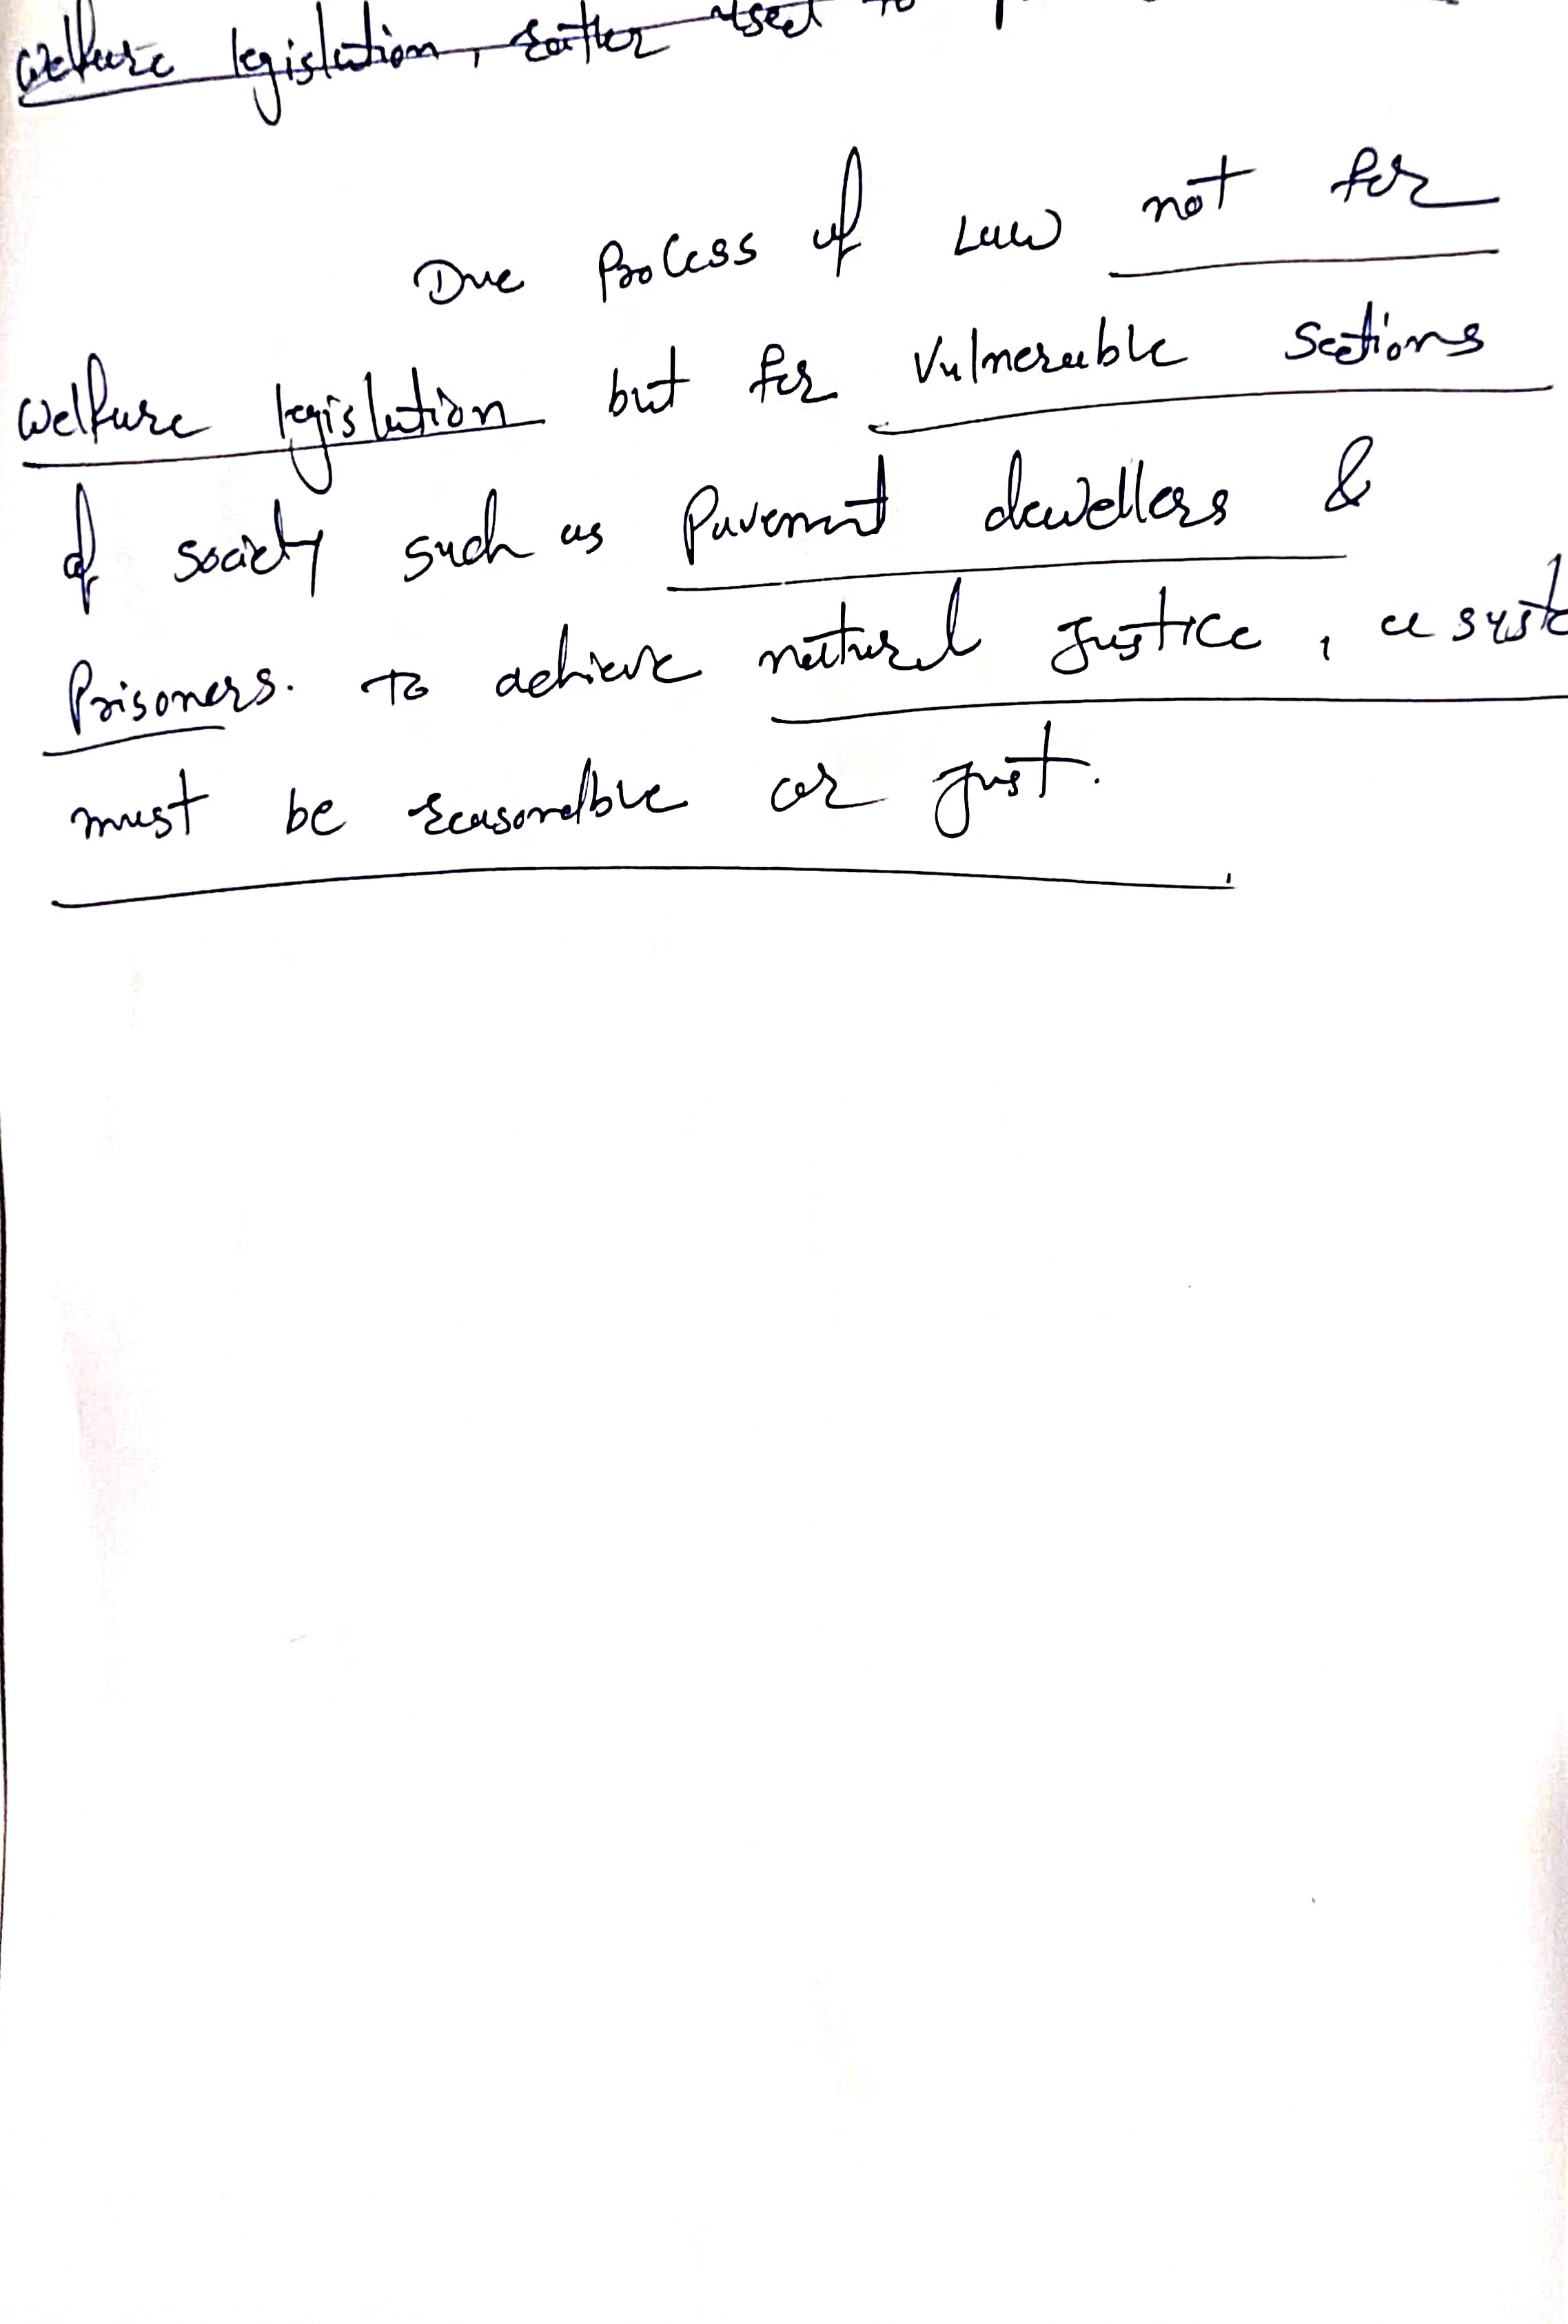 welfare legislation, rather used to
Due Process of Law not for
welfare legislation but for vulnerable sections
of society such as Pavement dewellers &
Prisoners. To achieve natural justice, a syste
must be reasonable or just.